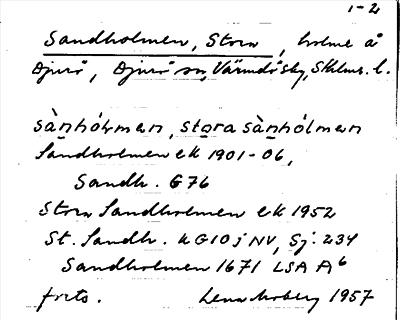 1-2
Sandholmen, Stora, holme å
Djurö, Djurö sn, Värmdö sky, Sthlms. l.
sànhólmen, stora sànhólmen
Sandholmen ek 1901-06,
Sandh. G76
Stora Sandholmen ek 1952
St. Sandh. kG10jNV, Sj. 234
Sandholmen 1671 LSA A6
forts. Lena Moberg 1957